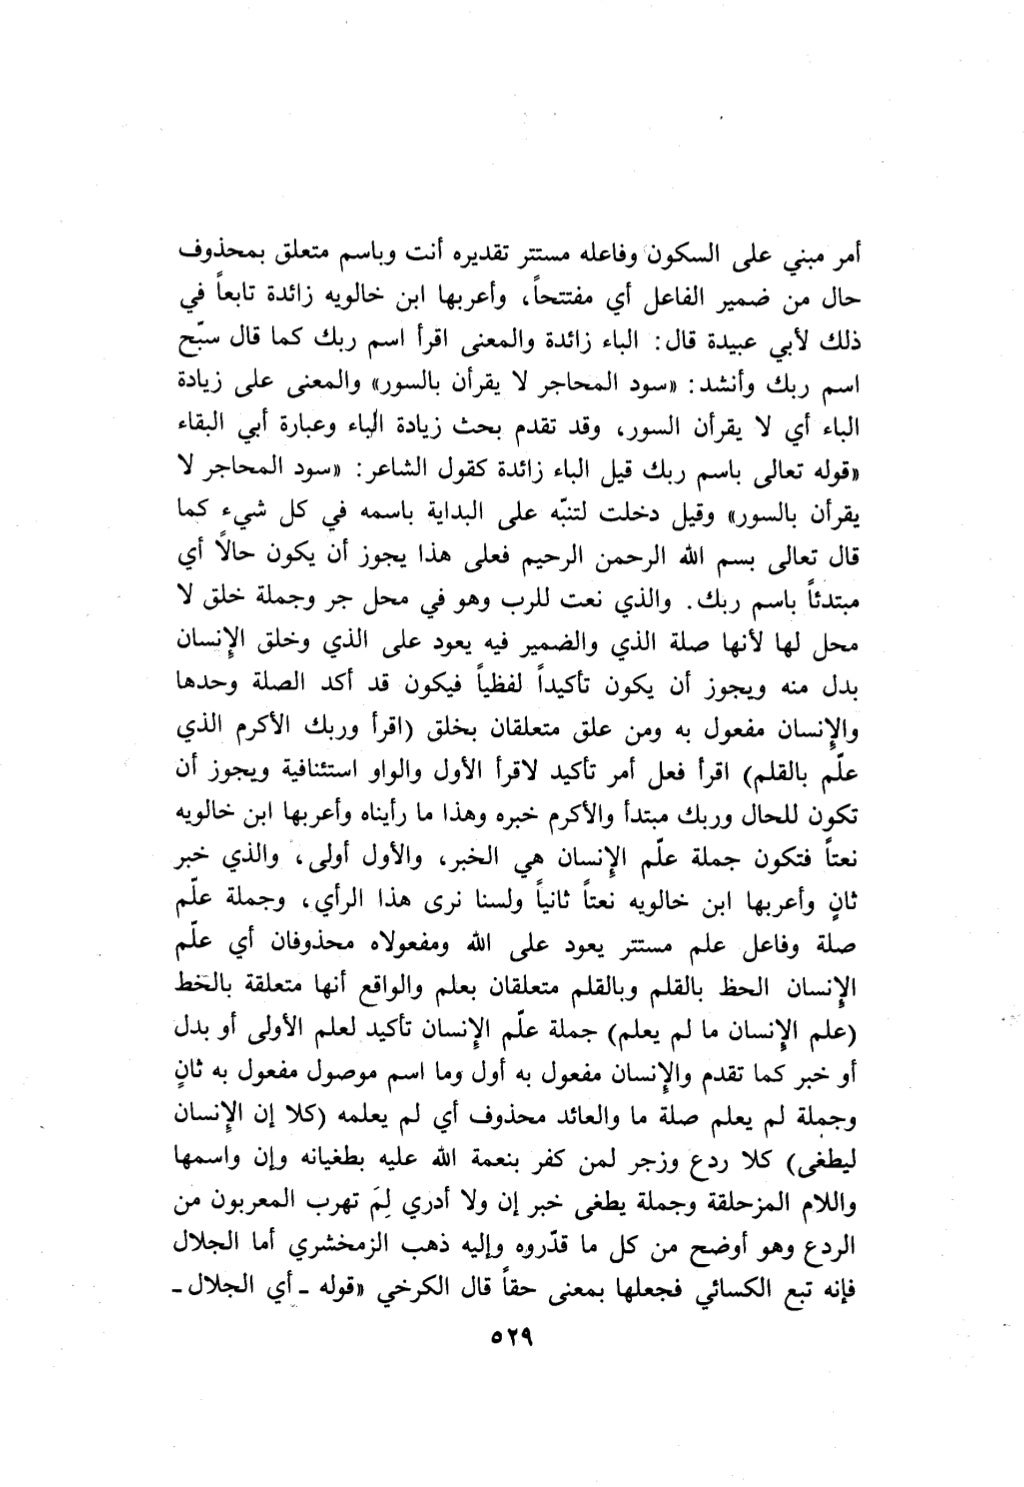 أمر مبني على السكون وفاعله مستتر تقديره أنت وباسم متعلق بمحذوف
حال من ضمير الفاعل أي مفتتحاً، وأعربها ابن خالويه زائدة تابعاً في
ذلك لأبي عبيدة قال: الباء زائدة والمعنى اقرأ اسم ربك كما قال سبّح
اسم ربك وأنشد: «سود المحاجر لا يقرأن بالسور» والمعنى على زيادة
الباء أي لا يقرأن السور، وقد تقدم بحث زيادة الباء وعبارة أبي البقاء
«قوله تعالى باسم ربك قيل الباء زائدة كقول الشاعر: «سود المحاجر لا
يقرأن بالسور» وقيل دخلت لتنبّه على البداية باسمه في كل شيء كما
قال تعالى بسم الله الرحمن الرحيم فعلى هذا يجوز أن يكون حالاً أي
مبتدئاً باسم ربك. والذي نعت للرب وهو في محل جر وجملة خلق لا
محل لها لأنها صلة الذي والضمير فيه يعود على الذي وخلق الإنسان
بدل منه ويجوز أن يكون تأكيداً لفظياً فيكون قد أكد الصلة وحدها
والإنسان مفعول به ومن علق متعلقان بخلق (اقرأ وربك الأكرم الذي
علّم بالقلم) اقرأ فعل أمر تأكيد لاقرأ الأول والواو استئنافية ويجوز أن
تكون للحال وربك مبتدأ والأكرم خبره وهذا ما رأيناه وأعربها ابن خالويه
نعتاً فتكون جملة علّم الإنسان هي الخبر، والأول أولى، والذي خبر
ثانٍ وأعربها ابن خالويه نعتاً ثانياً ولسنا نرى هذا الرأي، وجملة علّم
صلة وفاعل علم مستتر يعود على الله ومفعولاه محذوفان أي علّم
الإنسان الحظ بالقلم وبالقلم متعلقان بعلم والواقع أنها متعلقة بالخط
(علم الإنسان ما لم يعلم) جملة علّم الإنسان تأكيد لعلم الأولى أو بدل
أو خبر كما تقدم والإنسان مفعول به أول وما اسم موصول مفعول به ثانٍ
وجملة لم يعلم صلة ما والعائد محذوف أي لم يعلمه (كلا إن الإنسان
ليطغى) كلا ردع وزجر لمن كفر بنعمة الله عليه بطغيانه وإن واسمها
واللام المزحلقة وجملة يطغى خبر إن ولا أدري لِمَ تهرب المعربون من
الردع وهو أوضح من كل ما قدّروه وإليه ذهب الزمخشري أما الجلال
فإنه تبع الكسائي فجعلها بمعنى حقاً قال الكرخي «قوله ـ أي الجلال ـ
٥٢٩